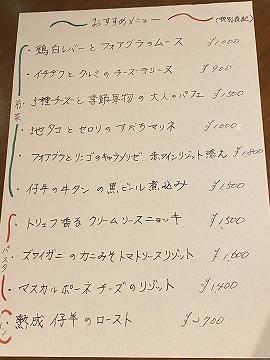 おすすめメニュー (税別表記)
前菜
・鶏白レバーとフォアグラのムース ¥1,000
・イチヂクとクルミのチーズテリーヌ ¥900
・3種チーズと季節果物の大人のパフェ ¥1,500
・地タコとセロリのすだちマリネ ¥1,000
・フォアグラとリンゴのキャラメリゼ 赤ワインリゾット添え ¥1,800
・仔牛の牛タンの黒ビール煮込み ¥1,500
パスタ
・トリュフ香る クリームソースニョッキ ¥1,500
・ズワイガニのカニみそトマトソースリゾット ¥1,600
・マスカルポーネチーズのリゾット ¥1,400
メイン
熟成 仔羊のロースト ¥2,700